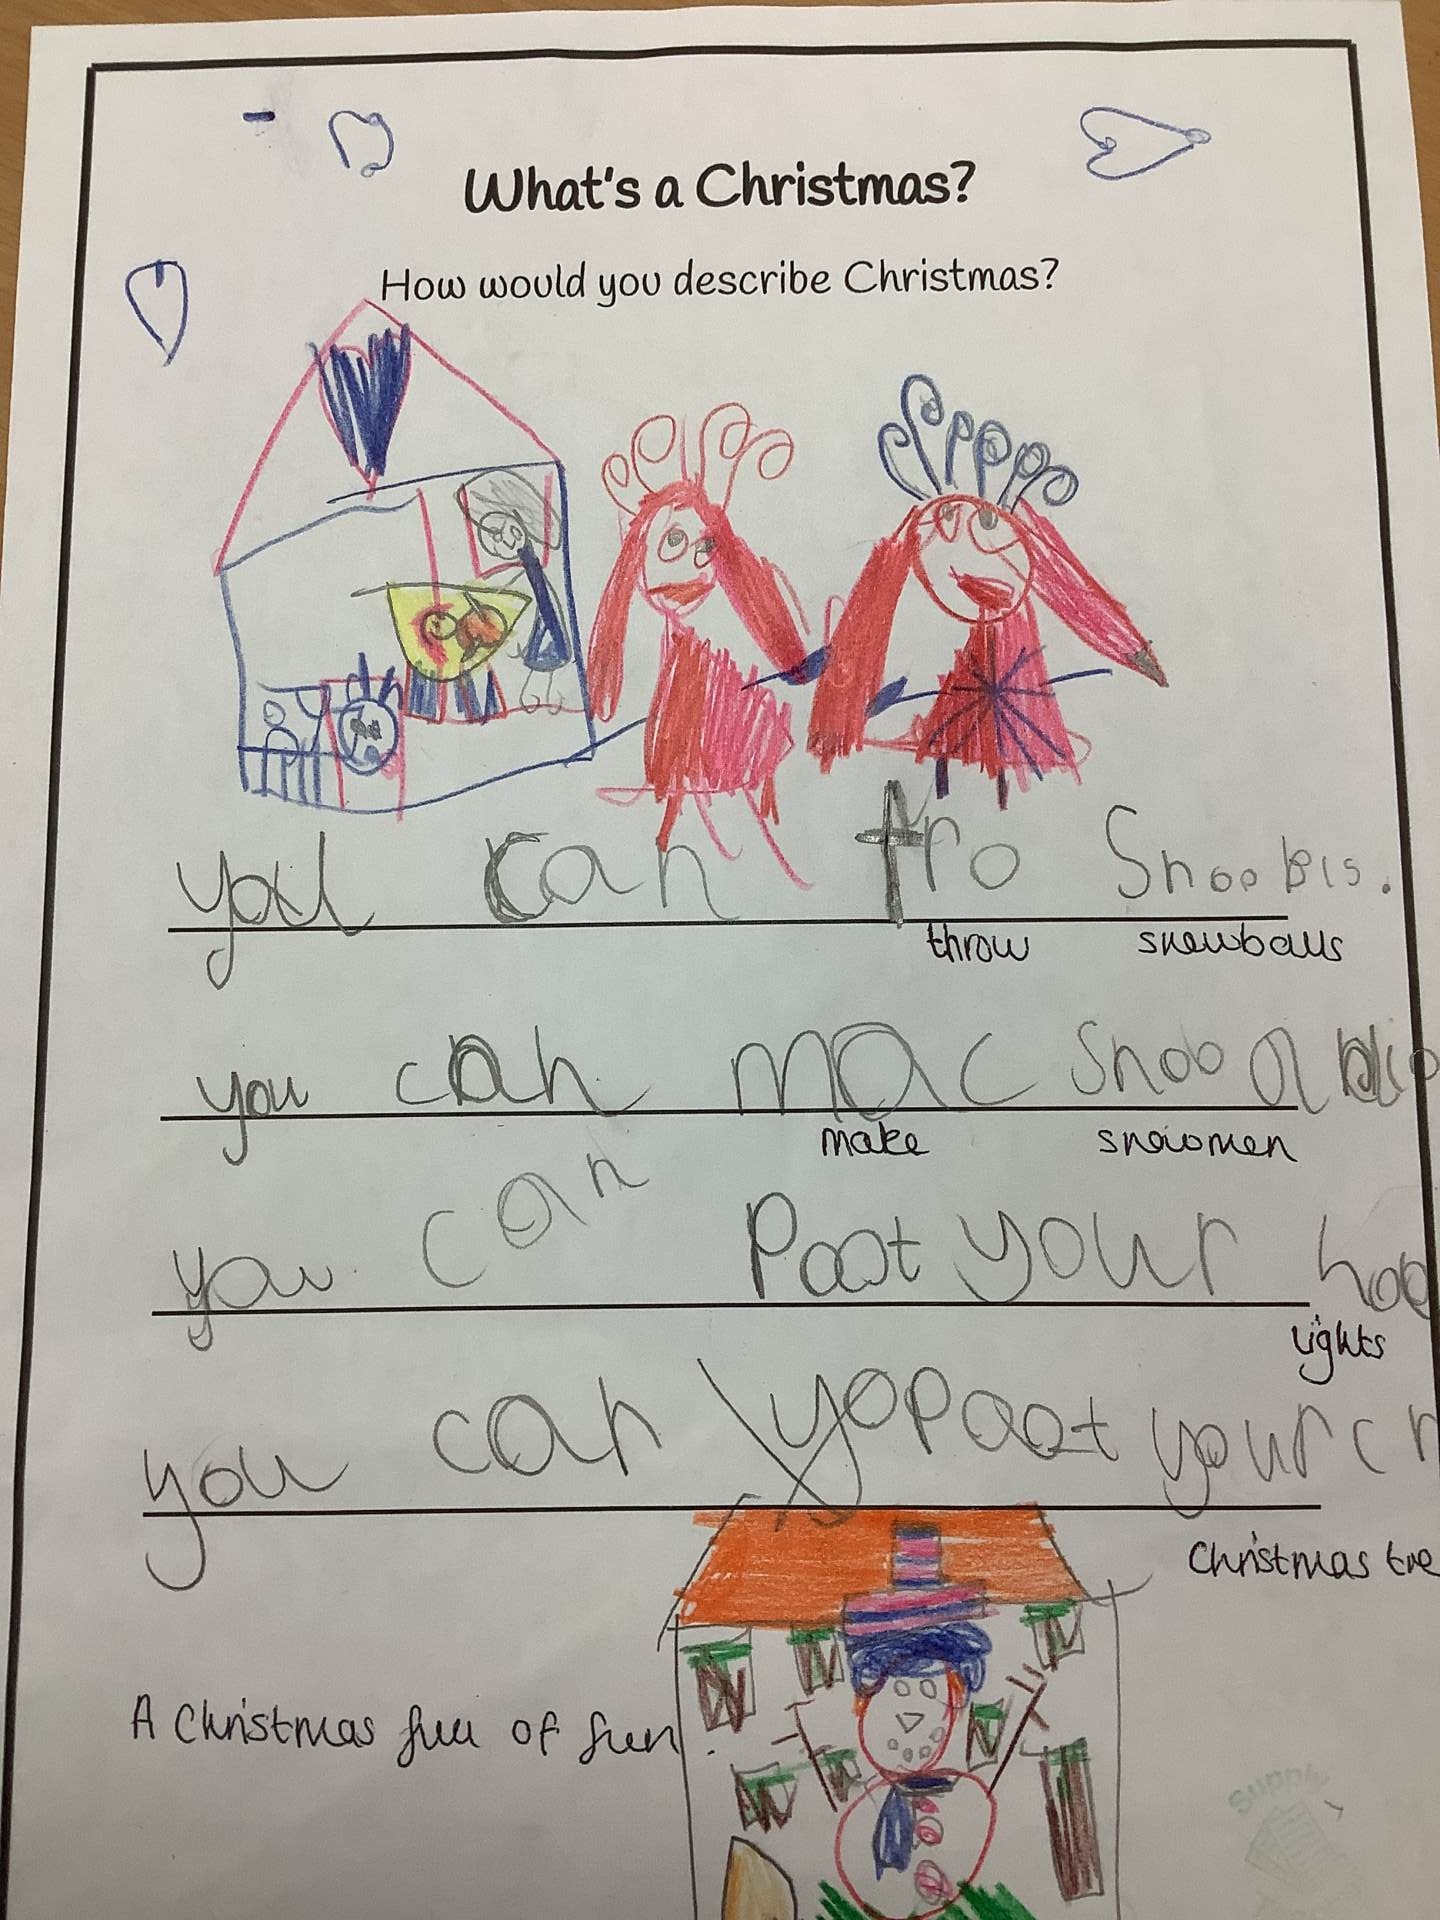 What's a Christmas?
How would you describe Christmas?
you can tro Snoobls.
throw snowballs
you can mac Snoo
make snowmen
you can Poot your hoo
lights
you can yopoot your cr
Christmas tre
A Christmas full of fun.
Supply